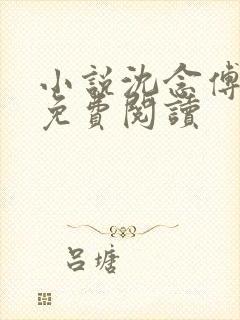 小說沈念傅
免費閱讀
呂塘